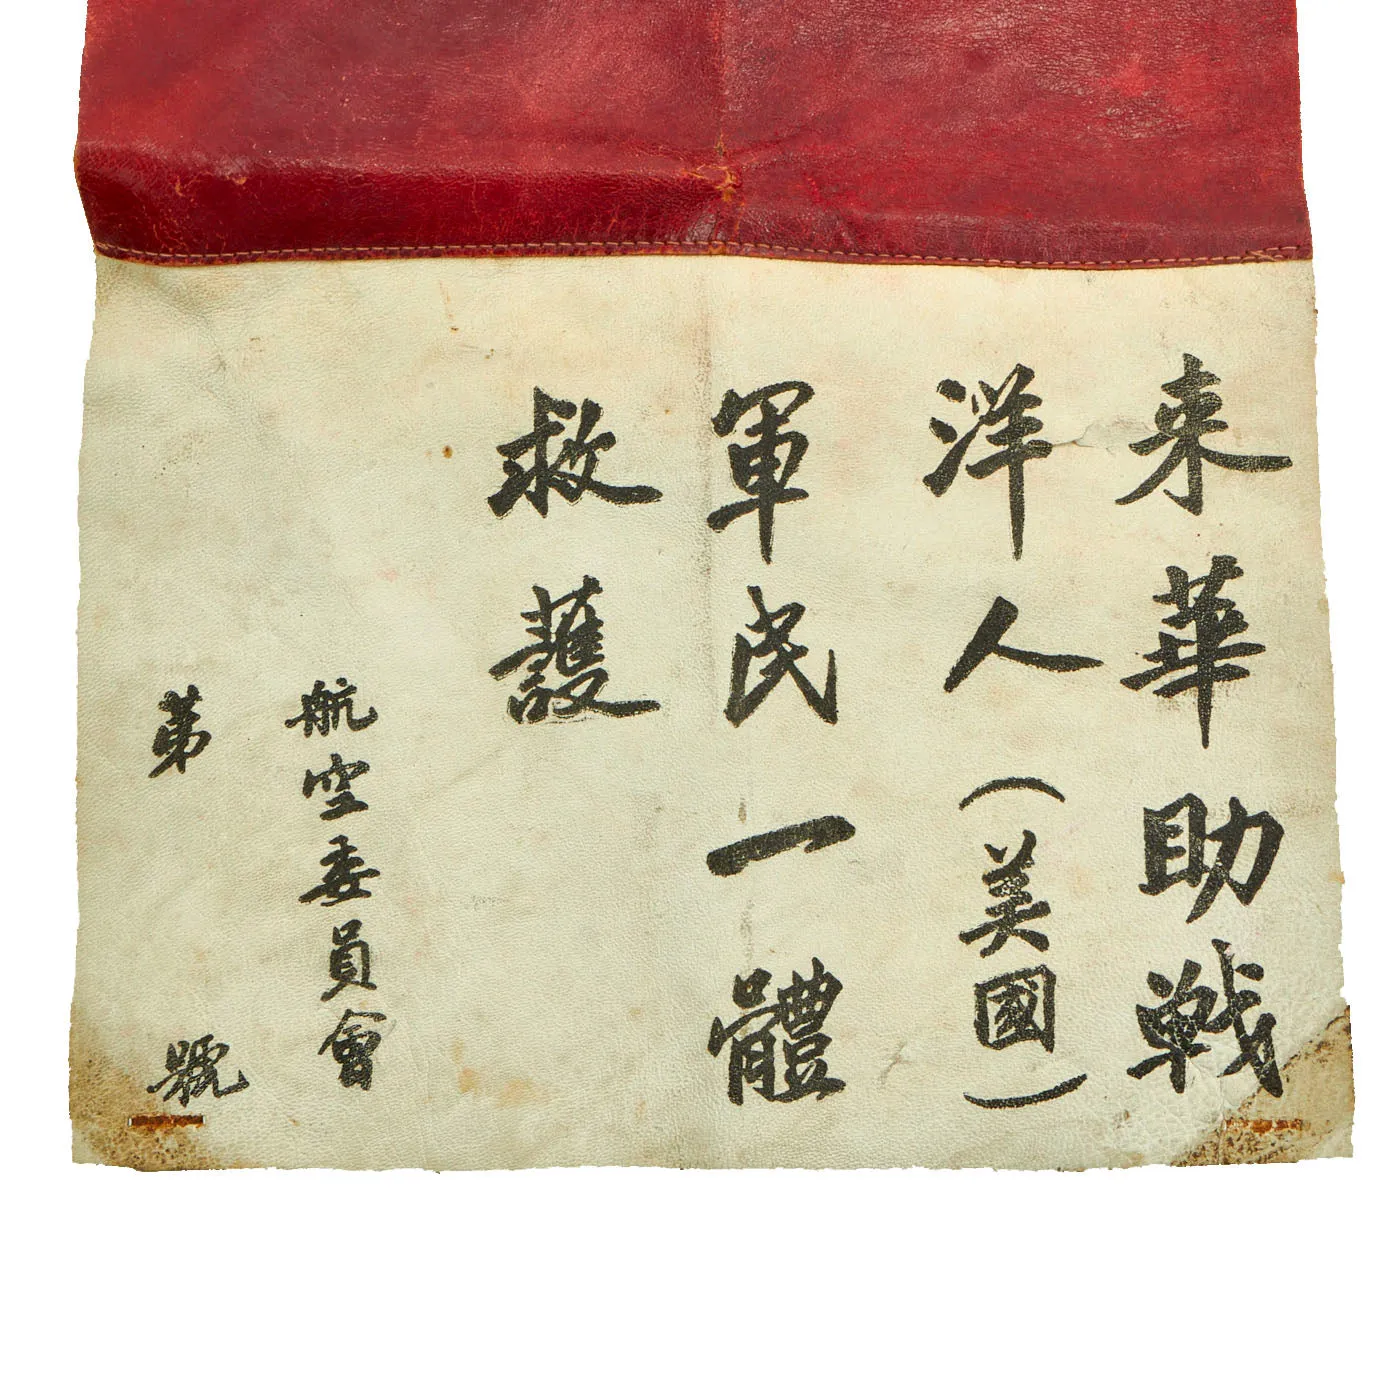 来華助戰
洋人(美國)
軍民一體
救護
航空委員會
第 號